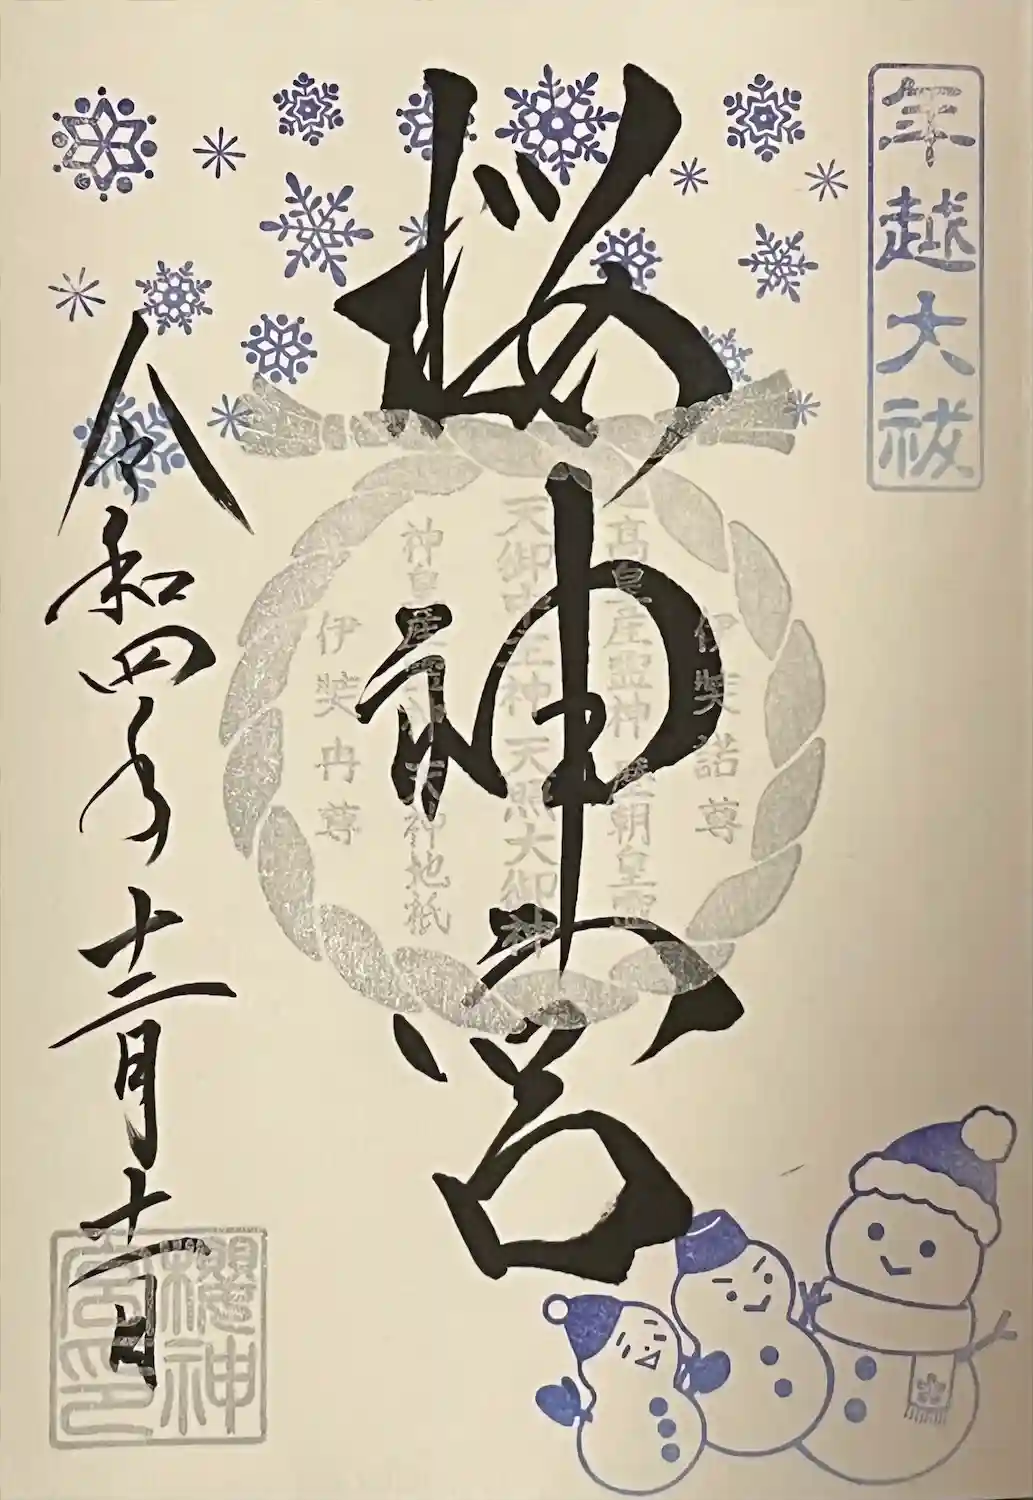 年越大祓
桜神宮
伊弉諾尊
高皇産霊神 歴朝皇霊
天御中主神 天照大御神
神皇産霊神 天神地祇
伊弉冉尊
令和四年十二月十一日
櫻神
宮印